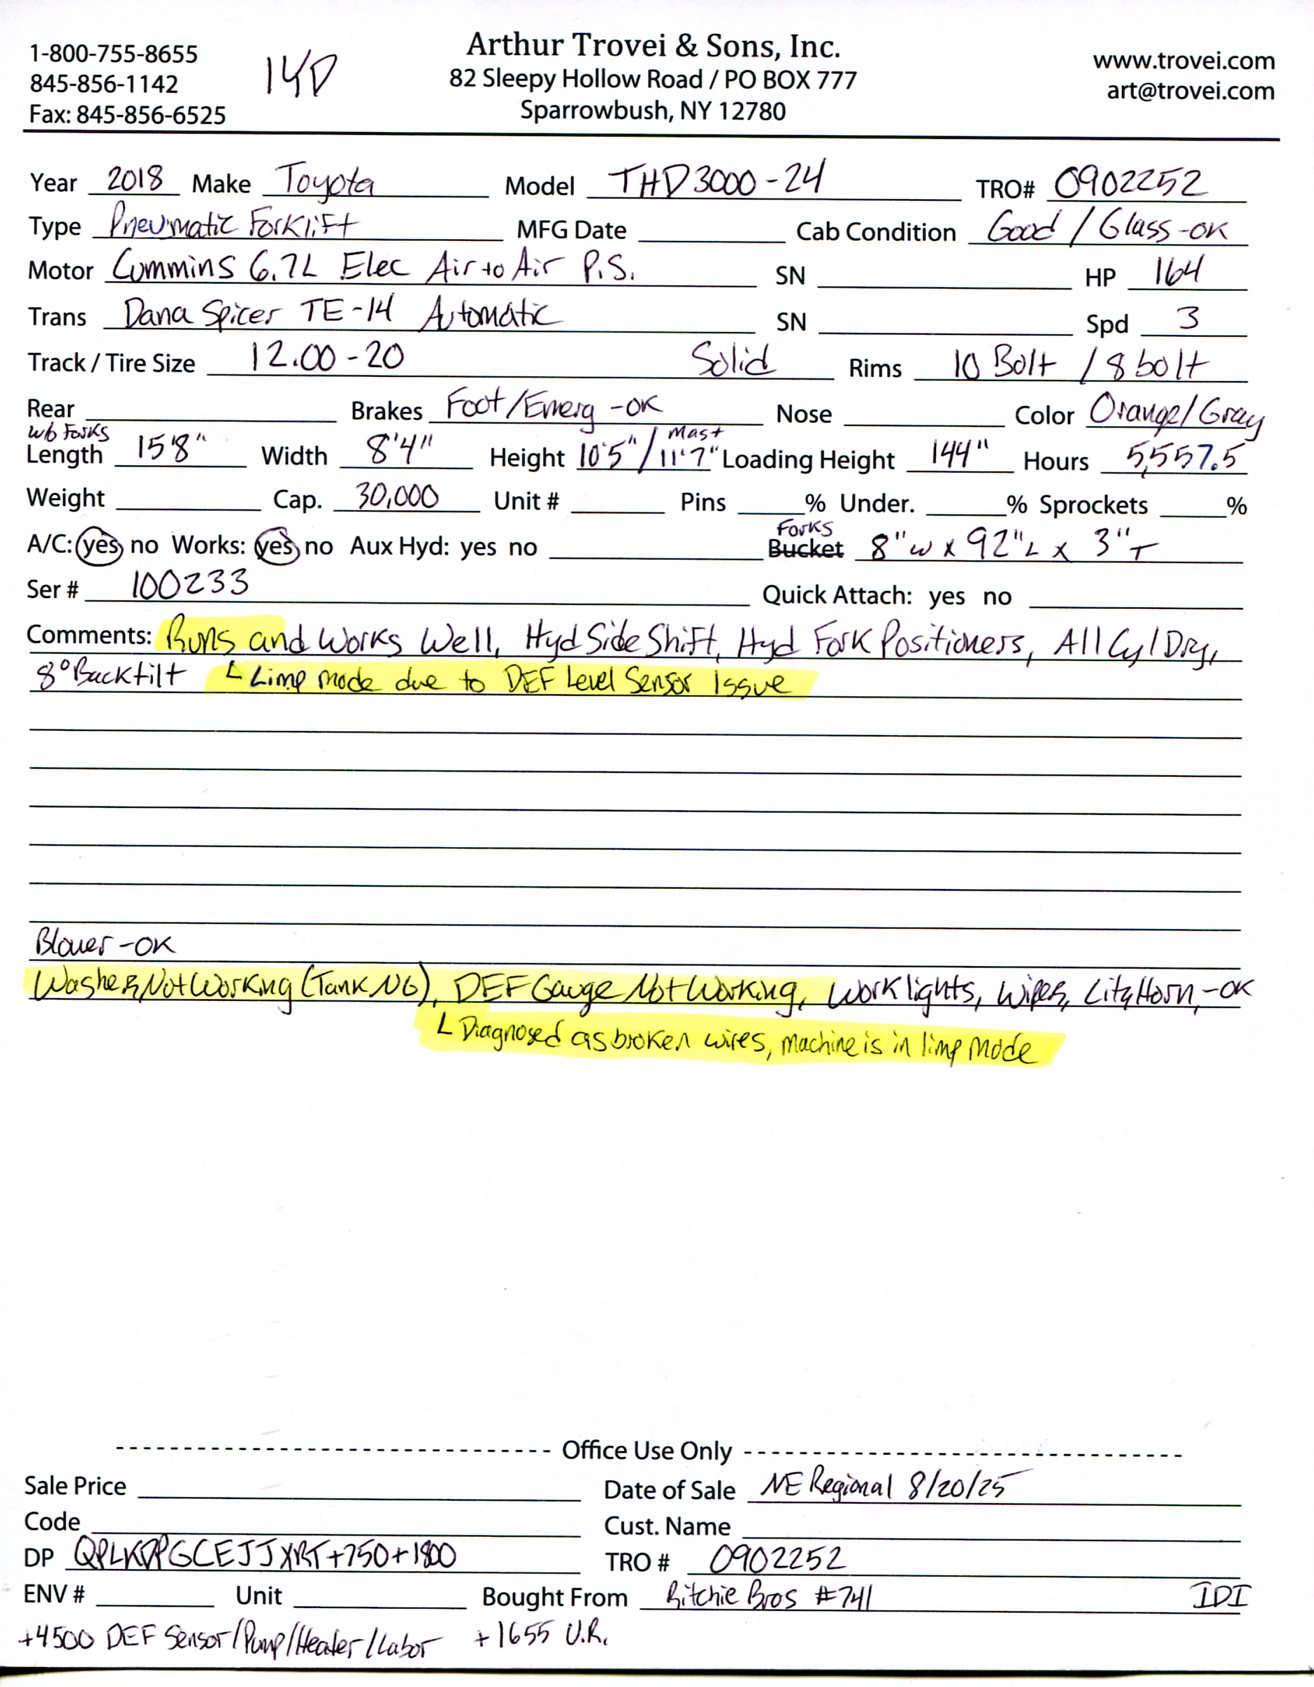 1-800-755-8655
845-856-1142
Fax: 845-856-6525
14D
Arthur Trovei & Sons, Inc.
82 Sleepy Hollow Road / PO BOX 777
Sparrowbush, NY 12780
www.trovei.com
art@trovei.com
Year 2018 Make Toyota Model THD3000-24 TRO# 0902252
Type Pneumatic Forklift MFG Date Cab Condition Good / Glass-OK
Motor Cummins 6.7L Elec Air to Air P.S. SN HP 164
Trans Dana Spicer TE-14 Automatic SN Spd 3
Track / Tire Size 12.00-20 Solid Rims 10 Bolt / 8 bolt
Rear Brakes Foot/Emerg -OK Nose Color Orange/Gray
w/o Forks
Length 15'8" Width 8'4" Height 10'5" / 11'7" Mast Loading Height 144" Hours 5,557.5
Weight Cap. 30,000 Unit # Pins % Under. % Sprockets %
A/C: yes no Works: yes no Aux Hyd: yes no Forks Bucket 8"W x 92"L x 3"T
Ser # 100233 Quick Attach: yes no
Comments: Runs and Works Well, Hyd Side Shift, Hyd Fork Positioners, All Cyl Dry,
8° Backtilt Limp mode due to DEF Level Sensor Issue
Blower -OK
Washer Not Working (Tank NG), DEF Gauge Not Working, Work lights, Wipers, City Horn, -OK
Diagnosed as broken wires, machine is in limp mode
Office Use Only
Sale Price Date of Sale NE Regional 8/20/25
Code Cust. Name
DP +750+1800 TRO # 0902252
ENV # Unit Bought From Ritchie Bros #741 IDI
+4500 DEF Sensor/Pump/Heater/Labor +1655 U.R.